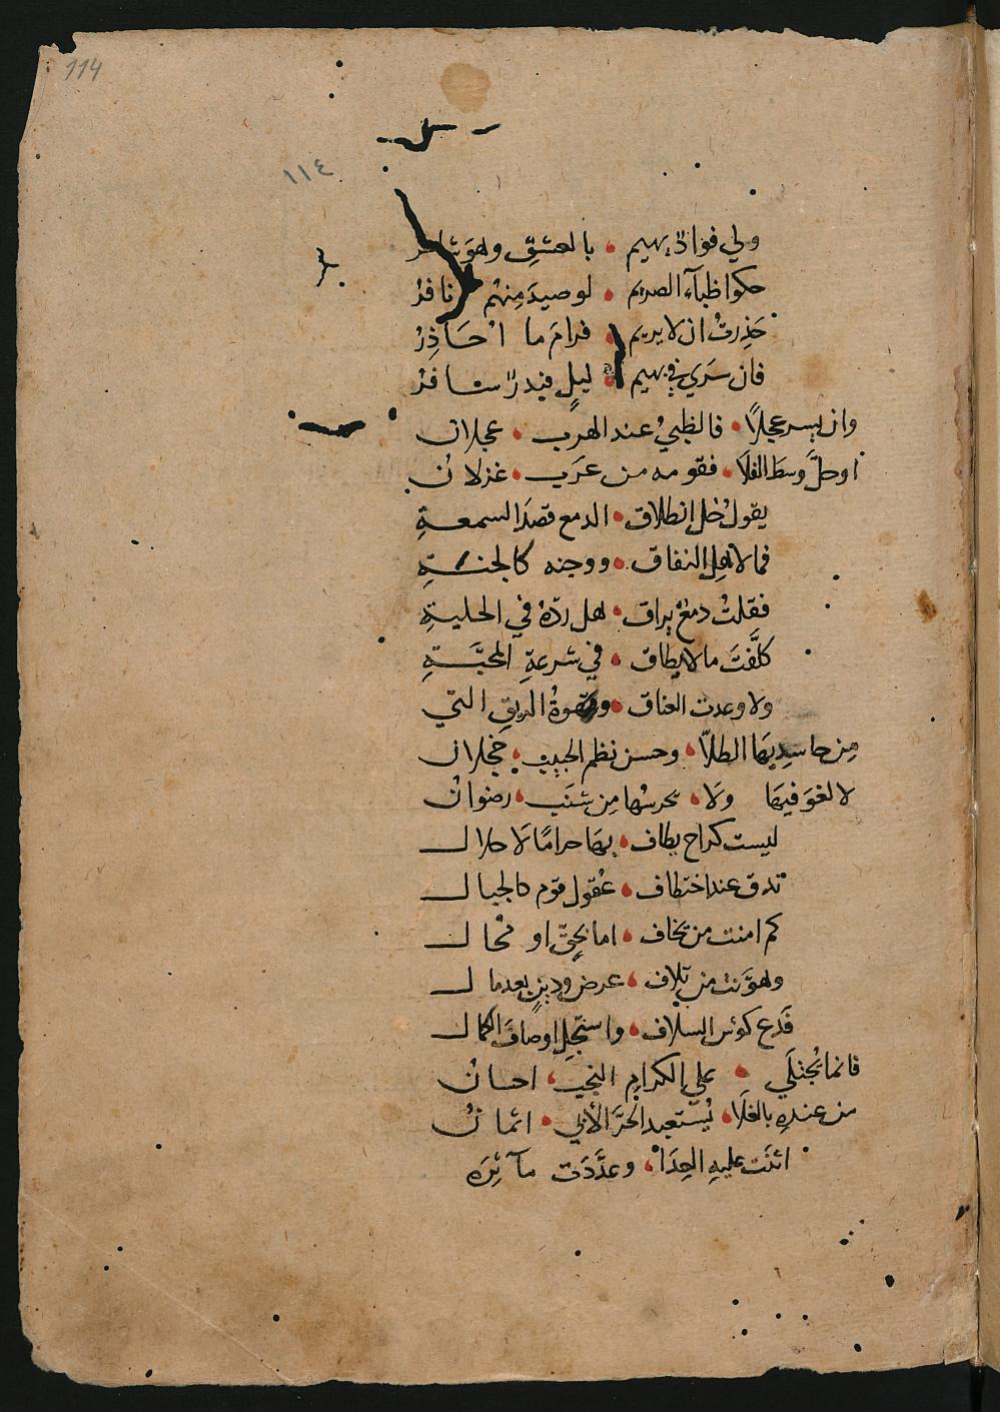 114
١١٤
ولي فوادٌ يهيم • بالعشق وهوَ
حكوا ظبآء الصريم • لو صيدَ مِنهُم نافرُ
حَذِرتُ ان لا يريم • فرامَ ما احَاذِرُ
فان سَري في بهيم • ليلٍ فبدرٌ سافرُ
وان يسر عجلاً • فالظبيُ عند الهرب • عجلان
او حلَّ وسطَ الفلَا • فقومه من عرَب • غزلانُ
يقولُ خل انطلاق • الدمع قصدَ السمعةِ
فما لاهل النفاق • ووجنه كالجنةِ
فقلتُ دمعٌ يراق • هل ردّهُ في الحليةِ
كلَّفتَ ما لا يطاق • في شرعةِ المحبَّةِ
ولا وعدت العناق • وقهوةُ الريقِ التي
مِن حاسِدِيهَا الطلّا • وحسن نظم الحبب • خجلان
لا لغوَ فيهَا ولَا • تحرسُها مِن شنَب • رضوانُ
ليست كراح يطاف • بهَا حرامًا لَا حلال
تدق عند اختطاف • عُقول قوم كالجبال
كم امنت من يخاف • اما بحقّ او مُحال
وهوَّنت من تلاف • عرض ودينٍ بعد مال
فَدع كوئس السلاف • واستجلِ اوصافَ الكمال
فانما تُجتلَي • علي الكرام النجب • احسانُ
من عندهِ بالغلَا • يُستعبد الحرَّ الأبي • اثمانُ
اثنَت عليهِ العِدَا • وعدَّدَت مآثِرَه